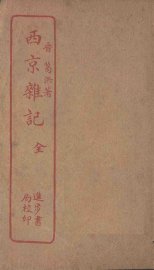 晉 葛洪著
西京雜記 全
進步書
局校印